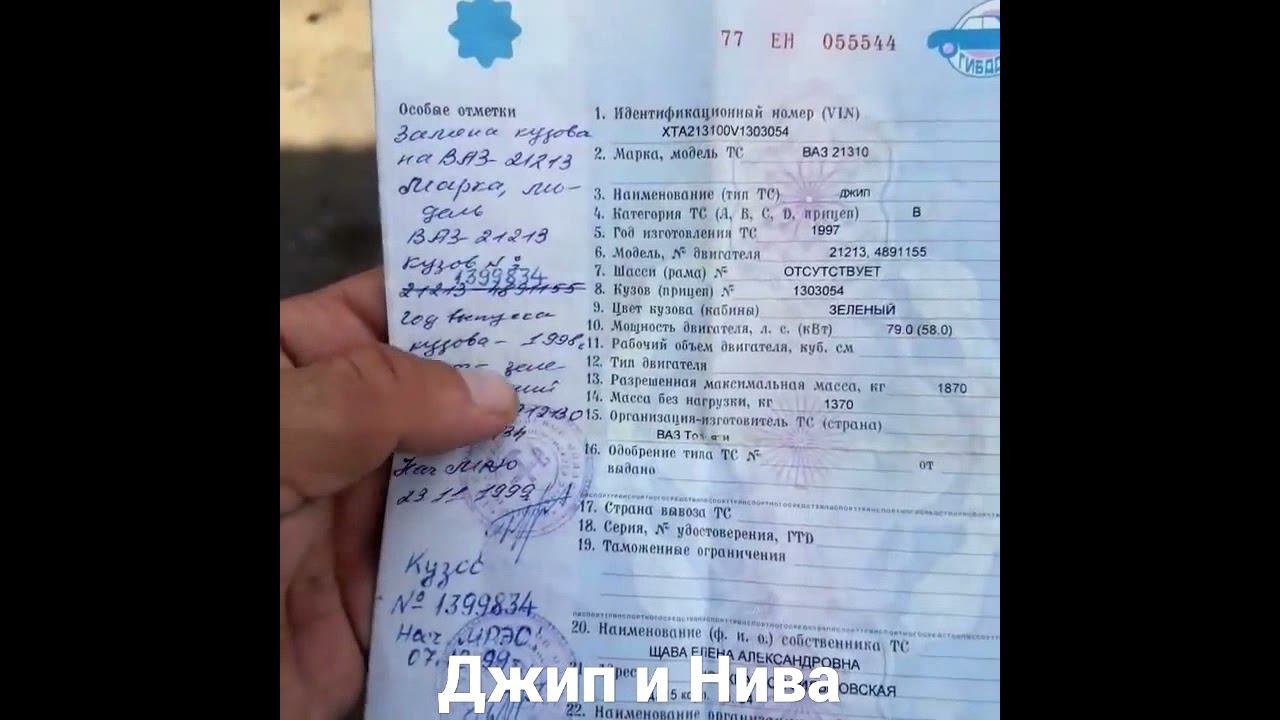 77 ЕН 055544
ГИБДД
Особые отметки
Замена кузова
на ВАЗ-21213
Марка, мо-
дель
ВАЗ-21213
Кузов №
1399834
21213 4891155
год выпуска
кузова – 1998г
зеле-
Нач МРЭО
1999
Кузов
№ 1399834
Нач МРЭО
1. Идентификационный номер (VIN)
XTA213100V1303054
2. Марка, модель ТС ВАЗ 21310
3. Наименование (тип ТС) ДЖИП
4. Категория ТС (A, B, C, D, прицеп) B
5. Год изготовления ТС 1997
6. Модель, № двигателя 21213, 4891155
7. Шасси (рама) № ОТСУТСТВУЕТ
8. Кузов (прицеп) № 1303054
9. Цвет кузова (кабины) ЗЕЛЕНЫЙ
10. Мощность двигателя, л. с. (кВт) 79.0 (58.0)
11. Рабочий объем двигателя, куб. см
12. Тип двигателя
13. Разрешенная максимальная масса, кг 1870
14. Масса без нагрузки, кг 1370
15. Организация-изготовитель ТС (страна)
ВАЗ
16. Одобрение типа ТС № от
выдано
17. Страна вывоза ТС
18. Серия, № удостоверения, ГТD
19. Таможенные ограничения
20. Наименование (ф. и. о.) собственника ТС
ЩАВА ЕЛЕНА АЛЕКСАНДРОВНА
22. Наименование
Джип и Нива